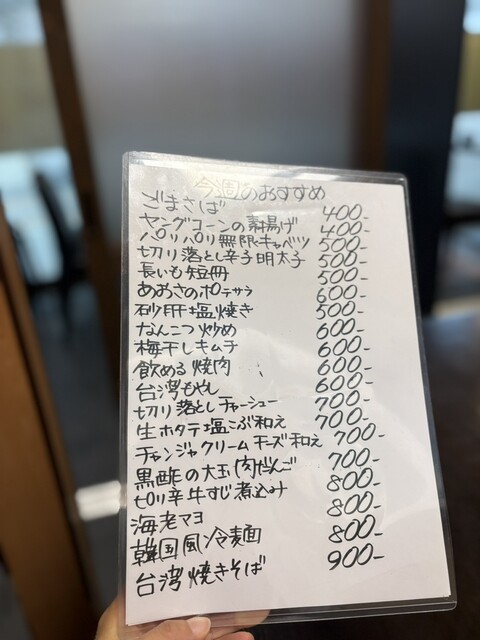 今週のおすすめ
ごまさば 400-
ヤングコーンの素揚げ 400-
パリパリ無限キャベツ 500-
切り落とし辛子明太子 500-
長いも短冊 500-
あおさのポテサラ 600-
砂肝塩焼き 500-
なんこつ炒め 600-
梅干しキムチ 600-
飲める焼肉 600-
台湾もやし 600-
切り落としチャーシュー 700-
生ホタテ塩こぶ和え 700-
チャンジャクリームチーズ和え 700-
黒酢の大玉肉だんご 700-
ピリ辛牛すじ煮込み 800-
海老マヨ 800-
韓国風冷麺 800-
台湾焼きそば 900-